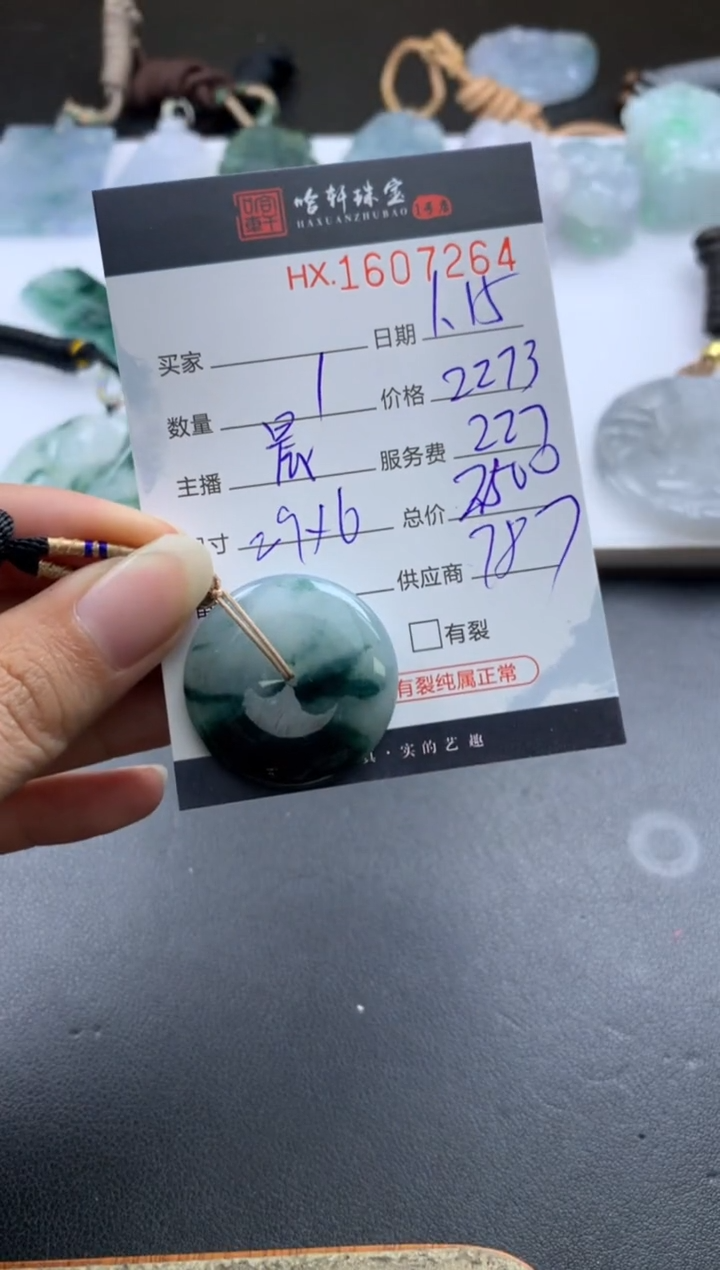 哈轩珠宝 1号店
HAXUANZHUBAO
HX.1607264
买家 日期 1.15
数量 1 价格 2273
主播 晨 服务费 227
寸 29×6 总价 2500
供应商 787
有裂
有裂纯属正常
·实的艺趣